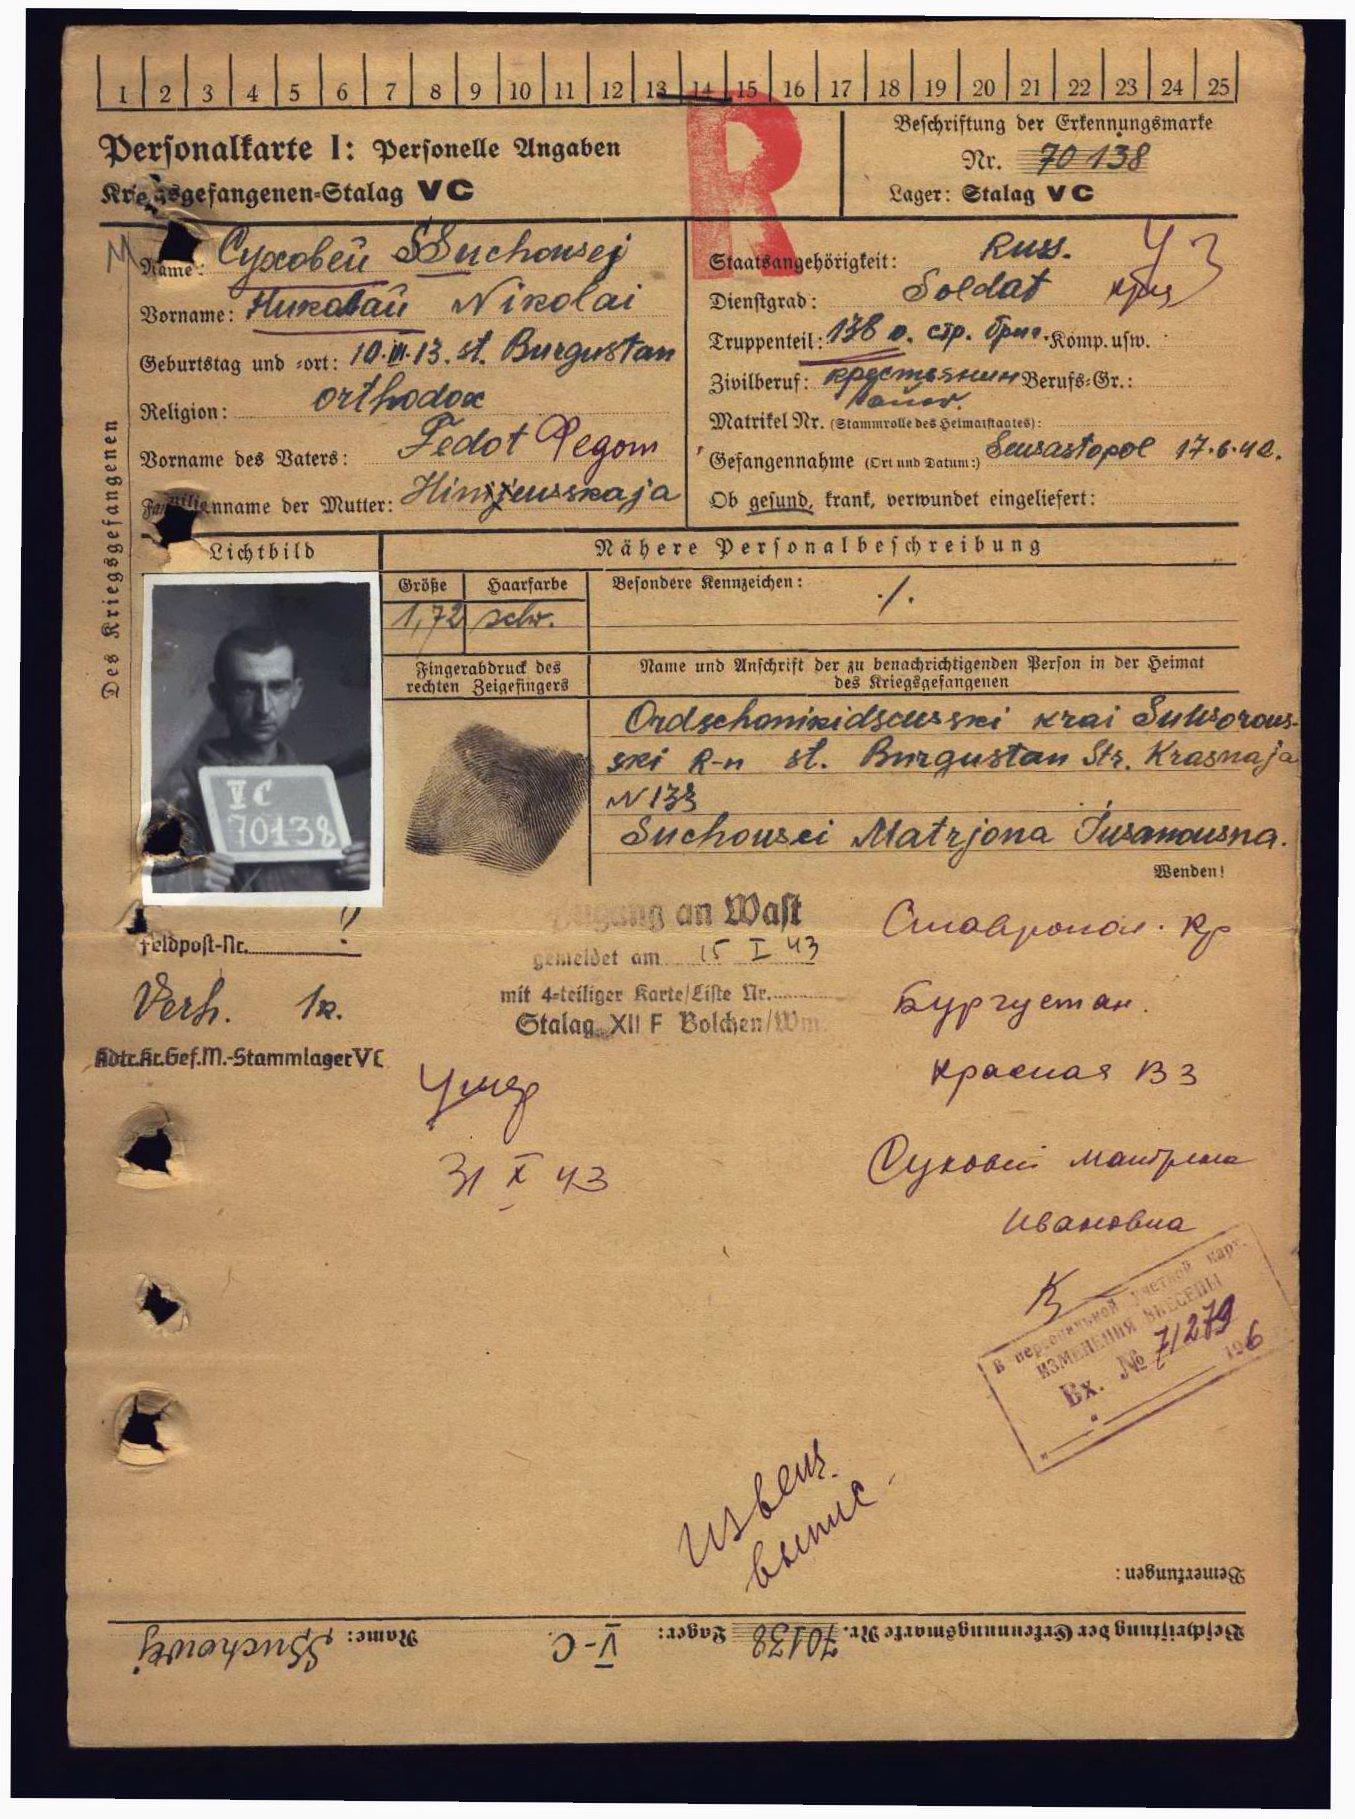 1 2 3 4 5 6 7 8 9 10 11 12 13 14 15 16 17 18 19 20 21 22 23 24 25
R
Personalkarte I: Personelle Angaben
Kriegsgefangenen-Stalag VC
Beschriftung der Erkennungsmarke
Nr. 70 138
Lager: Stalag VC
Des Kriegsgefangenen
Name: Суховей Suchowej
Vorname: Николай Nikolai
Geburtstag und -ort: 10.III.13. st. Burgustan
Religion: orthodox
Vorname des Vaters: Fedot Федот
Familienname der Mutter:
Staatsangehörigkeit: Russ.
Dienstgrad: Soldat
Truppenteil: 138 о. стр. бриг. Komp. usw.
Zivilberuf: крестьянин Berufs-Gr.:
Matrikel Nr. (Stammrolle des Heimatstaates):
Gefangennahme (Ort und Datum:) Sewastopol 17.6.42.
Ob gesund, krank, verwundet eingeliefert:
Lichtbild
Nähere Personalbeschreibung
Größe Haarfarbe Besondere Kennzeichen: ./.
1,72 schw.
Fingerabdruck des rechten Zeigefingers
Name und Anschrift der zu benachrichtigenden Person in der Heimat
des Kriegsgefangenen
Ordschonikidsewski krai Suworows-
ski R-n st. Burgustan Str. Krasnaja
N 133
Suchowei Matrjona Iwanowna.
Wenden!
V C
70138
Feldpost-Nr.
Verh. 1k.
Kdtr.Kr.Gef.M.-Stammlager VC
Zugang an Wast
gemeldet am 15 I 43
mit 4-teiliger Karte/Liste Nr.
Stalag XII F Bolchen/Wm.
Ставропол. кр
Бургустан.
Красная 133
Суховей Матрена
Ивановна
Умер
31 X 43
В персональной учетной карт.
ИЗМЕНЕНИЯ ВНЕСЕНЫ
Вх. № 71279
196
Извещ.
выпис.
Bemerkungen:
Beschriftung der Erkennungsmarke Nr. 70138 Lager: V-C. Name: Suchowej